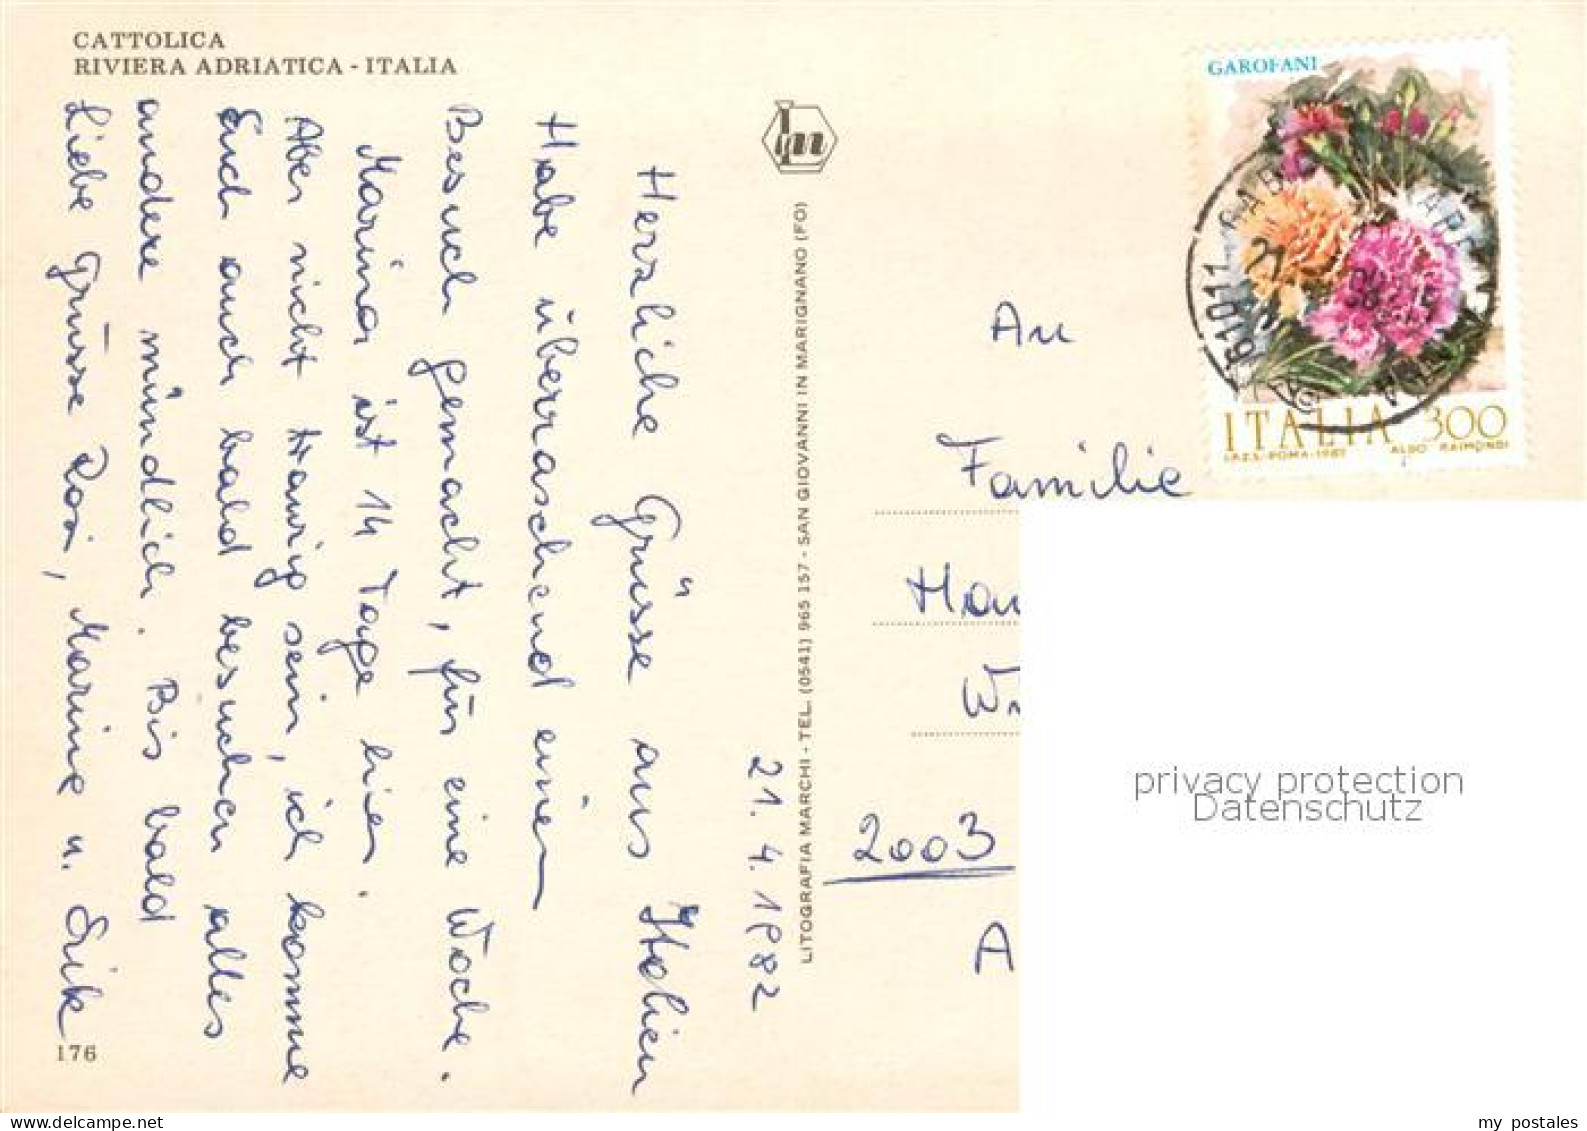 CATTOLICA
RIVIERA ADRIATICA - ITALIA
21. 4. 1982
Herzliche Grüsse aus Italien
Habe überraschend einen
Besuch gemacht, für eine Woche.
Marina ist 14 Tage hier.
Aber nicht traurig sein, ich komme
Euch auch bald besuchen alles
andere mündlich. Bis bald
Liebe Grüsse Rosi, Marina u. Erik
176
LITOGRAFIA MARCHI - TEL. (0541) 965 157 - SAN GIOVANNI IN MARIGNANO (FO)
GAROFANI
61011 GABICCE MARE
21
ITALIA 300
I.P.Z.S.-ROMA-1982 ALDO RAIMONDI
An
Familie
2003
A
privacy protection
Datenschutz
my postales